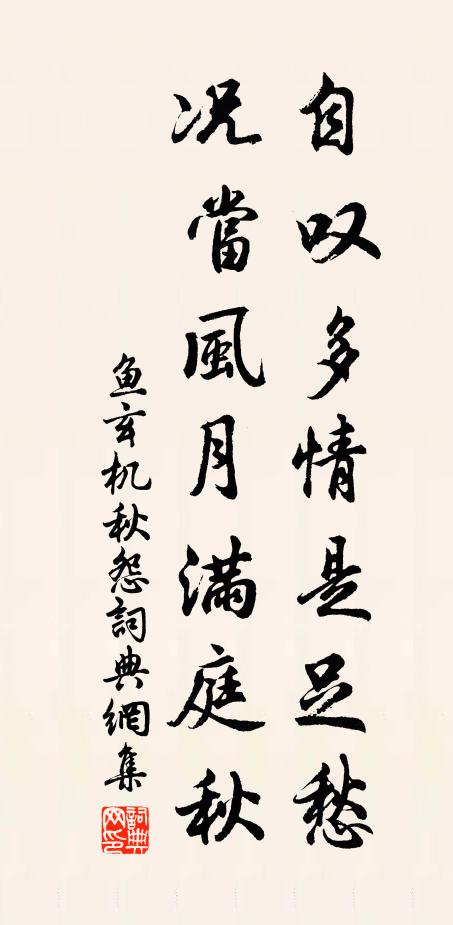 自叹多情是足愁
况當風月滿庭秋
鱼玄机秋怨詞典網集
詞典网印